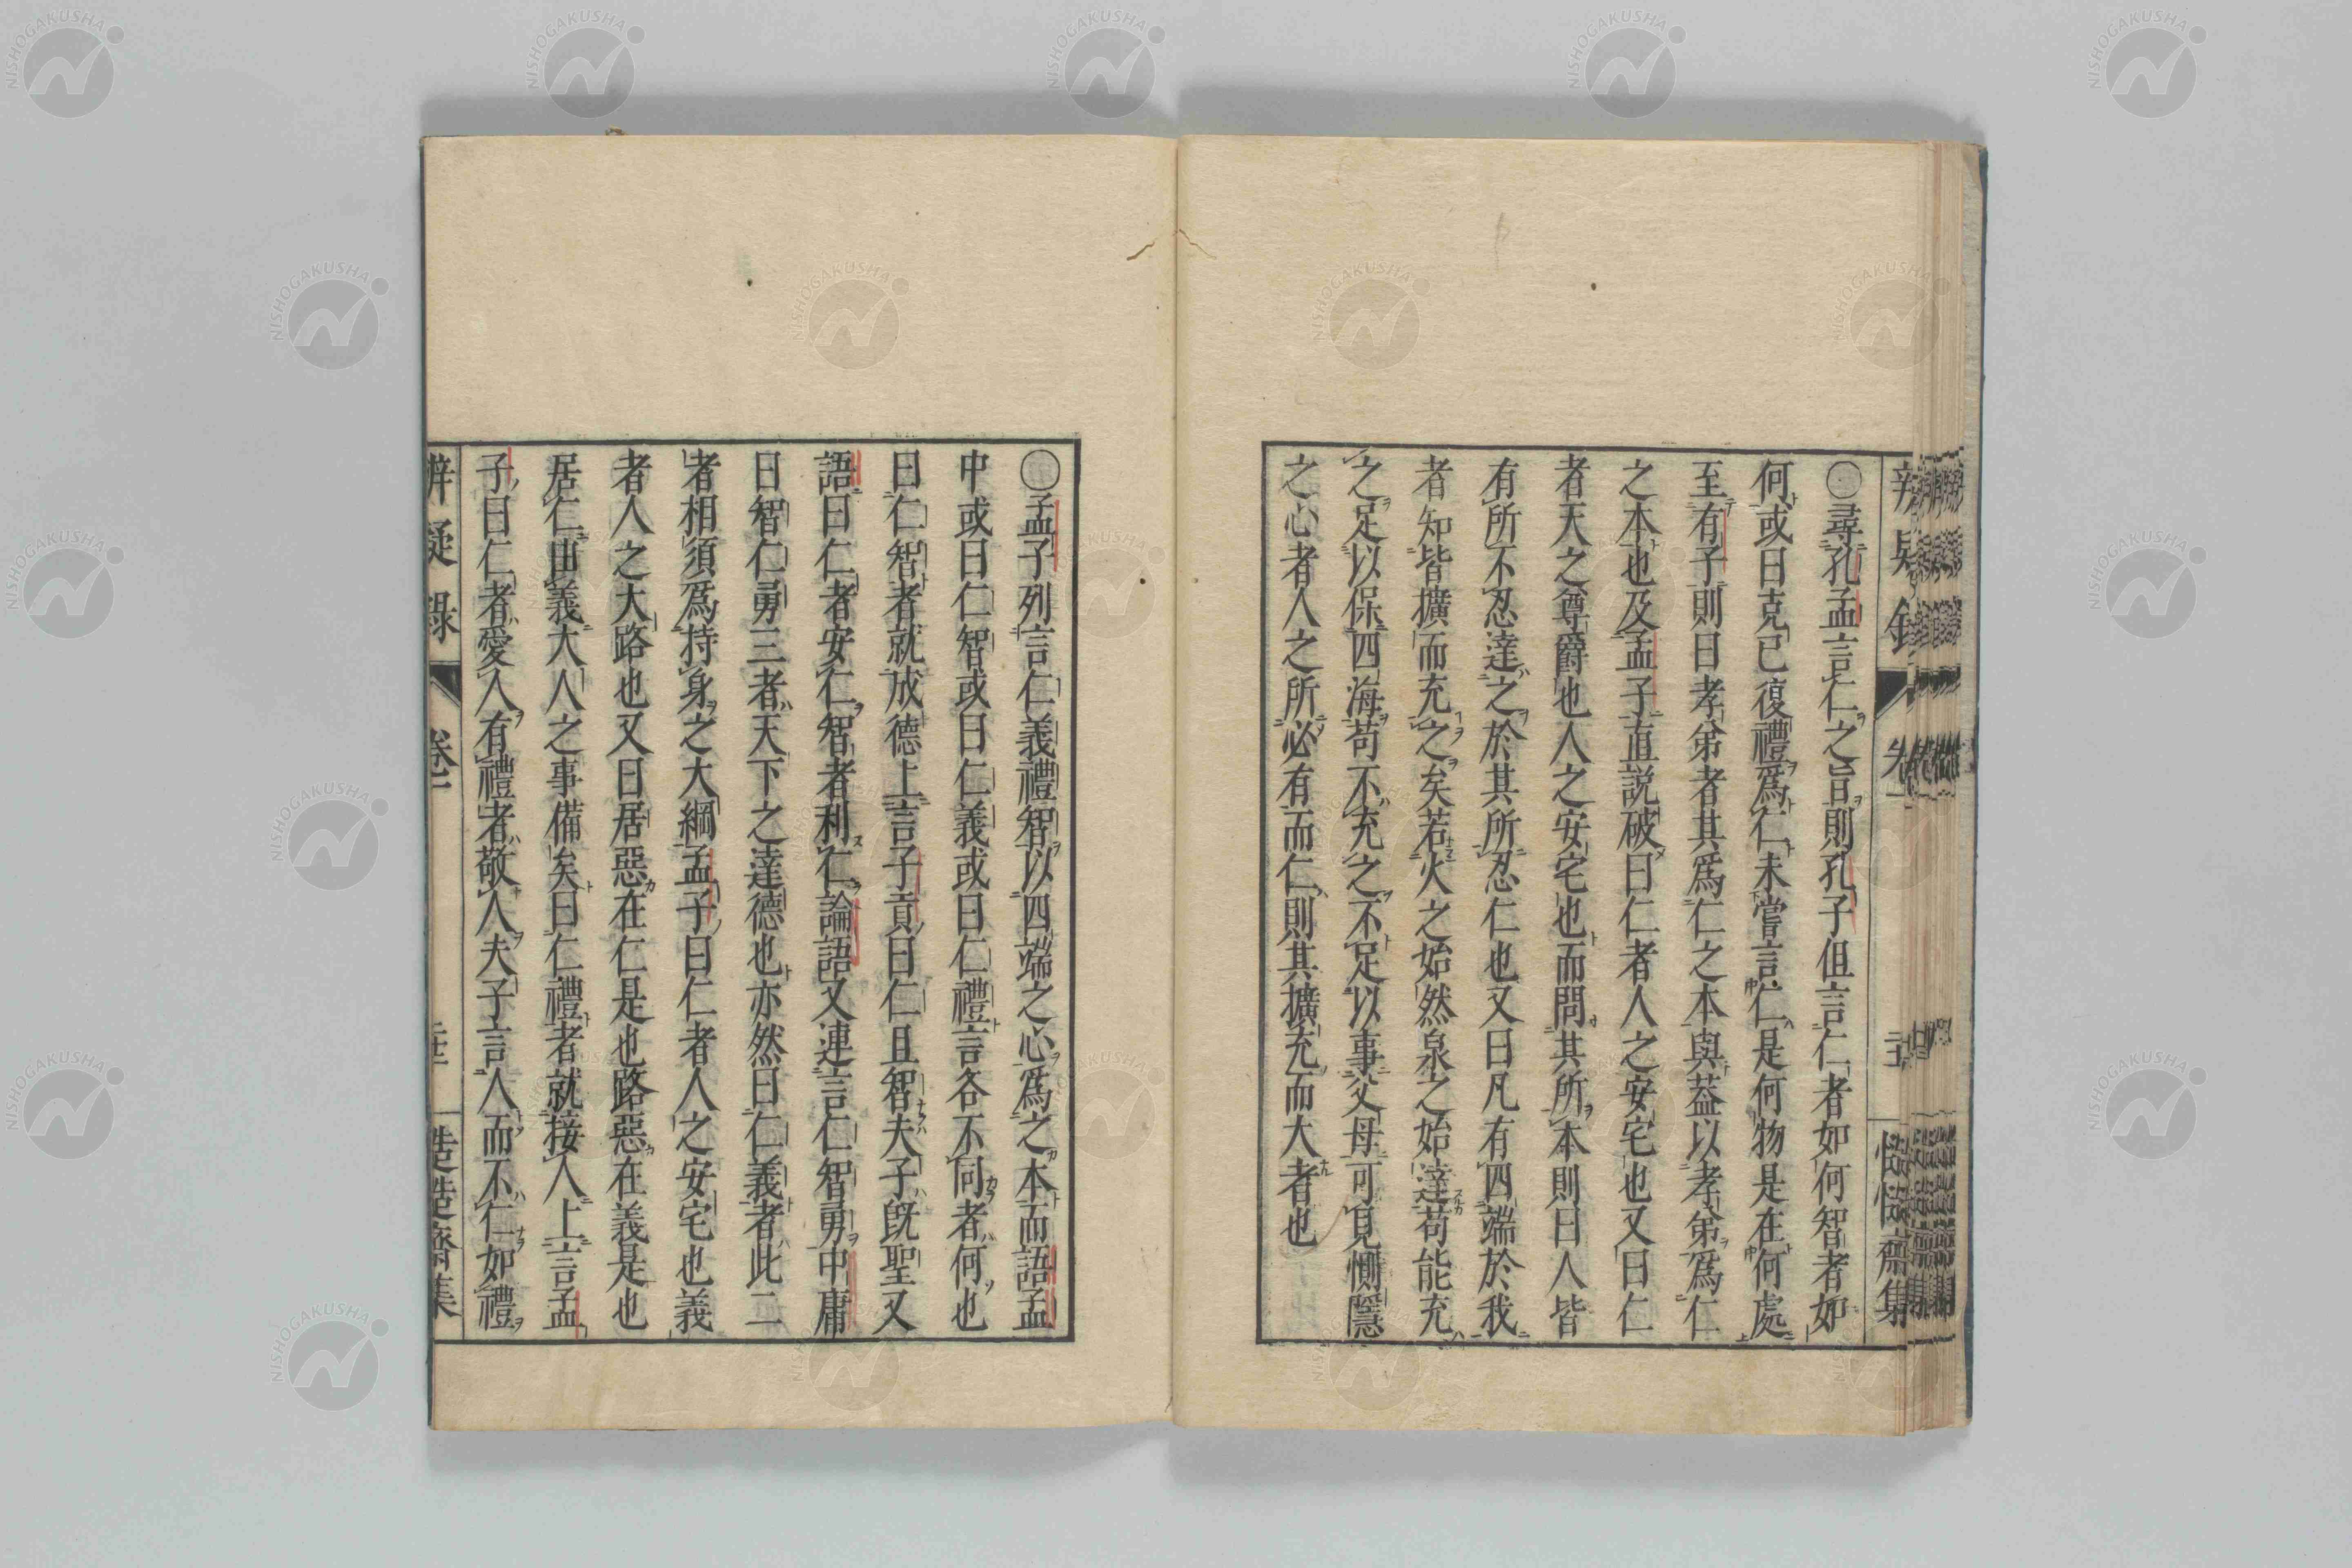 ◯尋孔孟言仁之旨則孔子但言仁者如何智者如
何或曰克己復禮爲仁未嘗言仁是何物是在何處
至有子則曰孝弟者其爲仁之本與蓋以孝弟爲仁
之本也及孟子直説破曰仁者人之安宅也又曰仁
者天之尊爵也人之安宅也而問其所本則曰人皆
有所不忍達之於其所忍仁也又曰凡有四端於我
者知皆擴而充之矣若火之始然泉之始達苟能充
之足以保四海苟不充之不足以事父母可見惻隱
之心者人之所必有而仁則其擴充而大者也
◯孟子列言仁義禮智以四端之心爲之本而語孟
中或曰仁智或曰仁義或曰仁禮言各不同者何也
曰仁智者就成德上言子貢曰仁且智夫子既聖又
語曰仁者安仁智者利仁論語又連言仁智勇中庸
曰智仁勇三者天下之達德也亦然曰仁義者此二
者相須爲持身之大綱孟子曰仁者人之安宅也義
者人之大路也又曰居惡在仁是也路惡在義是也
居仁由義大人之事備矣曰仁禮者就接人上言孟
子曰仁者愛人有禮者敬人夫子言人而不仁如禮
辨疑録 卷一
造造齋集
NISHOGAKUSHA